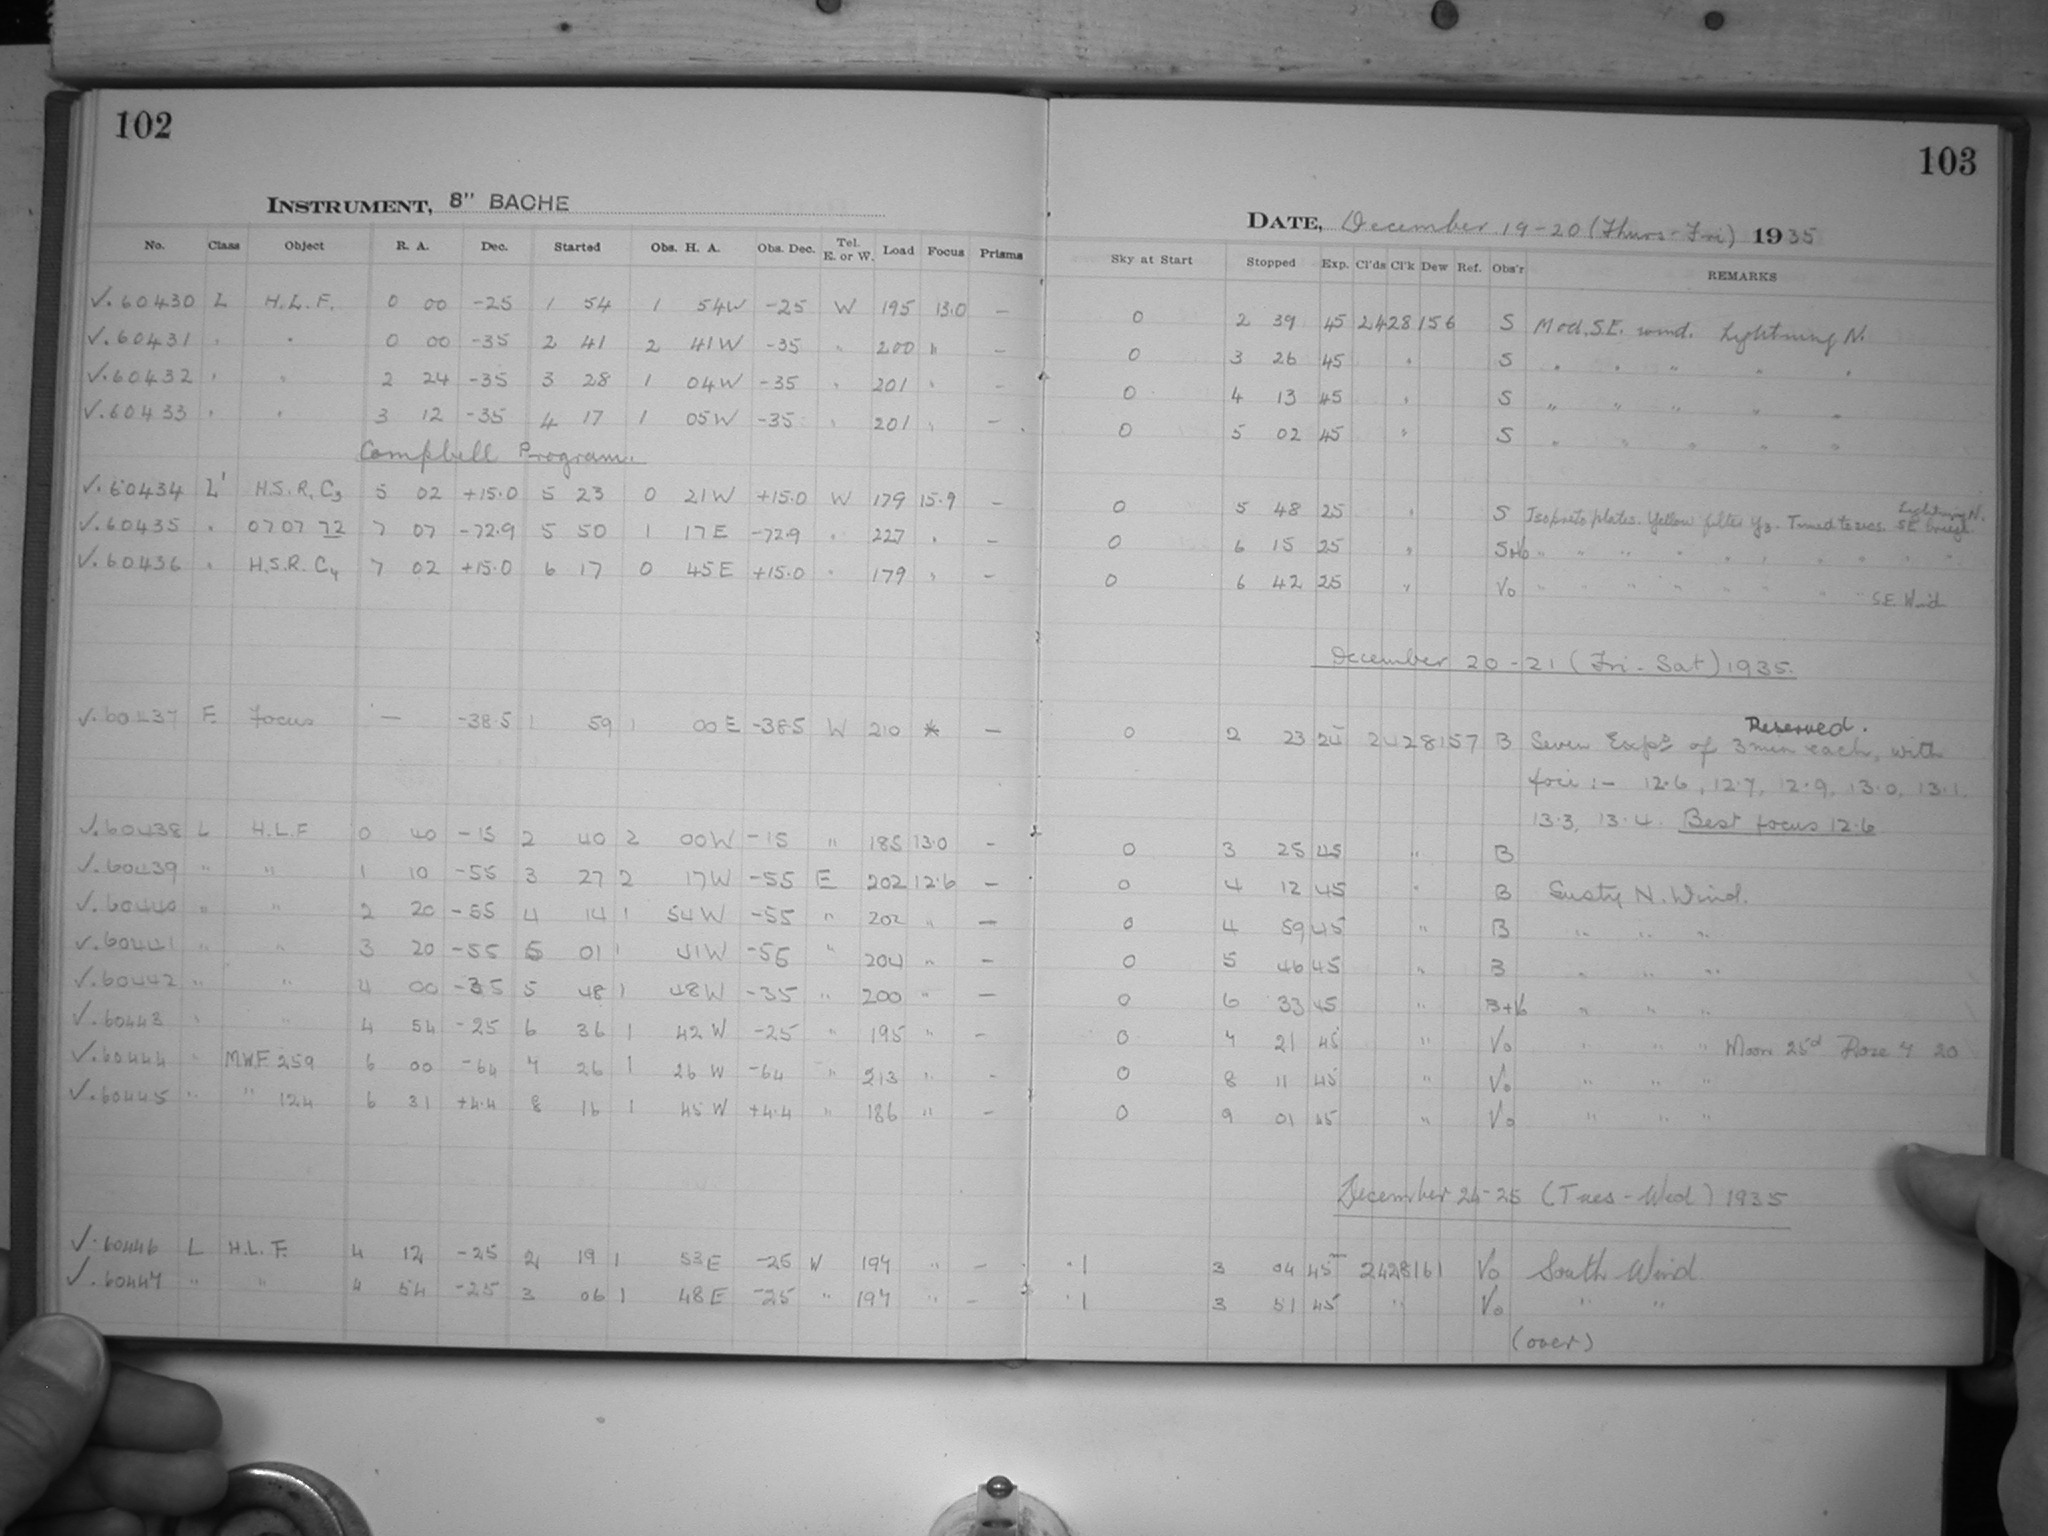 102
INSTRUMENT, 8" BACHE
No. Class Object R. A. Dec. Started Obs. H. A. Obs. Dec. Tel. E. or W. Load Focus Prisms
√.60430 L H.L.F. 0 00 -25 1 54 1 54W -25 W 195 13.0 —
√.60431 " " 0 00 -35 2 41 2 41W -35 " 200 " —
√.60432 " " 2 24 -35 3 28 1 04W -35 " 201 " —
√.60433 " " 3 12 -35 4 17 1 05W -35 " 201 " —
Campbell Program.
√.60434 L' H.S.R. C3 5 02 +15.0 5 23 0 21W +15.0 W 179 15.9 —
√.60435 " 070772 7 07 -72.9 5 50 1 17E -72.9 " 227 " —
√.60436 " H.S.R. C4 7 02 +15.0 6 17 0 45E +15.0 " 179 " —
√.60437 F. Focus — -38.5 1 59 1 00E -38.5 W 210 * —
√.60438 L H.L.F 0 40 -15 2 40 2 00W -15 " 185 13.0 —
√.60439 " " 1 10 -55 3 27 2 17W -55 E 202 12.6 —
√.60440 " " 2 20 -55 4 14 1 54W -55 " 202 " —
√.60441 " " 3 20 -55 5 01 1 41W -55 " 204 " —
√.60442 " " 4 00 -35 5 48 1 48W -35 " 200 " —
√.60443 " " 4 54 -25 6 36 1 42W -25 " 195 " —
√.60444 " MWF 259 6 00 -64 7 26 1 26W -64 " 213 " —
√.60445 " " 124 6 31 +4.4 8 16 1 45W +4.4 " 186 " —
√.60446 L H.L.F. 4 12 -25 2 19 1 53E -25 W 197 " —
√.60447 " " 4 54 -25 3 06 1 48E -25 " 197 " —
103
DATE, December 19-20 (Thurs-Fri) 1935
Sky at Start Stopped Exp. Cl'ds Cl'k Dew Ref. Obs'r REMARKS
0 2 39 45 2428156 S Mod. S.E. wind. Lightning N.
0 3 26 45 " S " " " " "
0 4 13 45 " S " " " " "
0 5 02 45 " S " " " " "
Lightning N.
0 5 48 25 " S Isopreto plates. Yellow filter Y3. S.E. breeze
0 6 15 25 " S+Vo " " " " " " " "
0 6 42 25 " Vo " " " " " " " S.E. Wind
December 20-21 (Fri-Sat) 1935.
Reserved.
0 2 23 24 2428157 B Seven Exps of 3 min each, with
foci :- 12.6, 12.7, 12.9, 13.0, 13.1,
13.3, 13.4. Best focus 12.6
0 3 25 45 " B
0 4 12 45 " B Gusty N. Wind.
0 4 59 45 " B " " "
0 5 46 45 " B " " "
0 6 33 45 " B+Vo " " "
0 7 21 45 " Vo " " " Moon 25d Rose 7 20
0 8 11 45 " Vo " " "
0 9 01 45 " Vo " " "
December 24-25 (Tues-Wed) 1935
"1 3 04 45 2428161 Vo South Wind
"1 3 51 45 " Vo " "
(over)